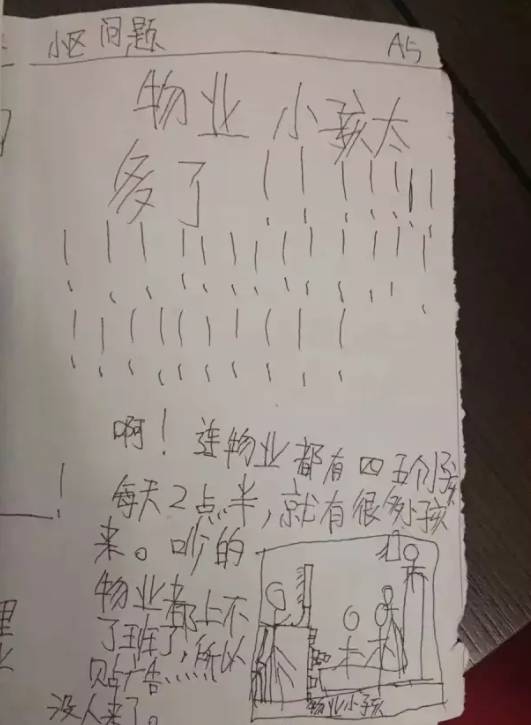 小区问题
A5
物业小孩太
多了！！！！！！！
！！！！！！！！！！！！！
！！！！！！！！！！！
啊！连物业都有四五个小孩
每天2点半，就有很多小孩
来。吵的
物业都上不
了班了，所以
贴广告、、、、、、
没人来了。
物业小孩